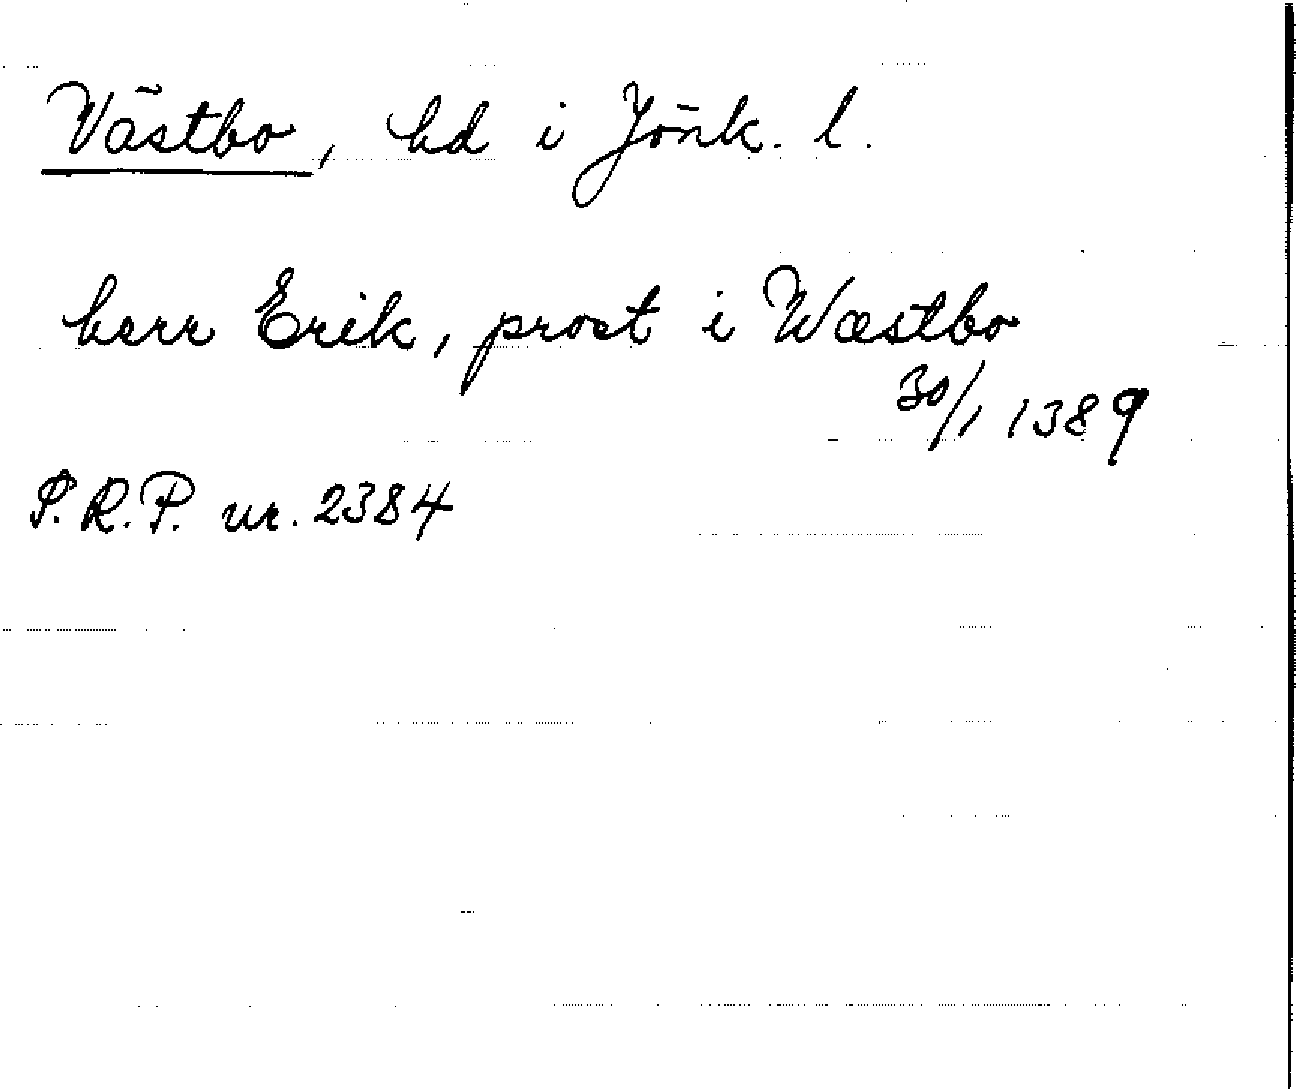 Västbo, hd i Jönk. l.
herr Erik, prost i Wæstbo
30/1 1389
S.R.P. nr. 2384